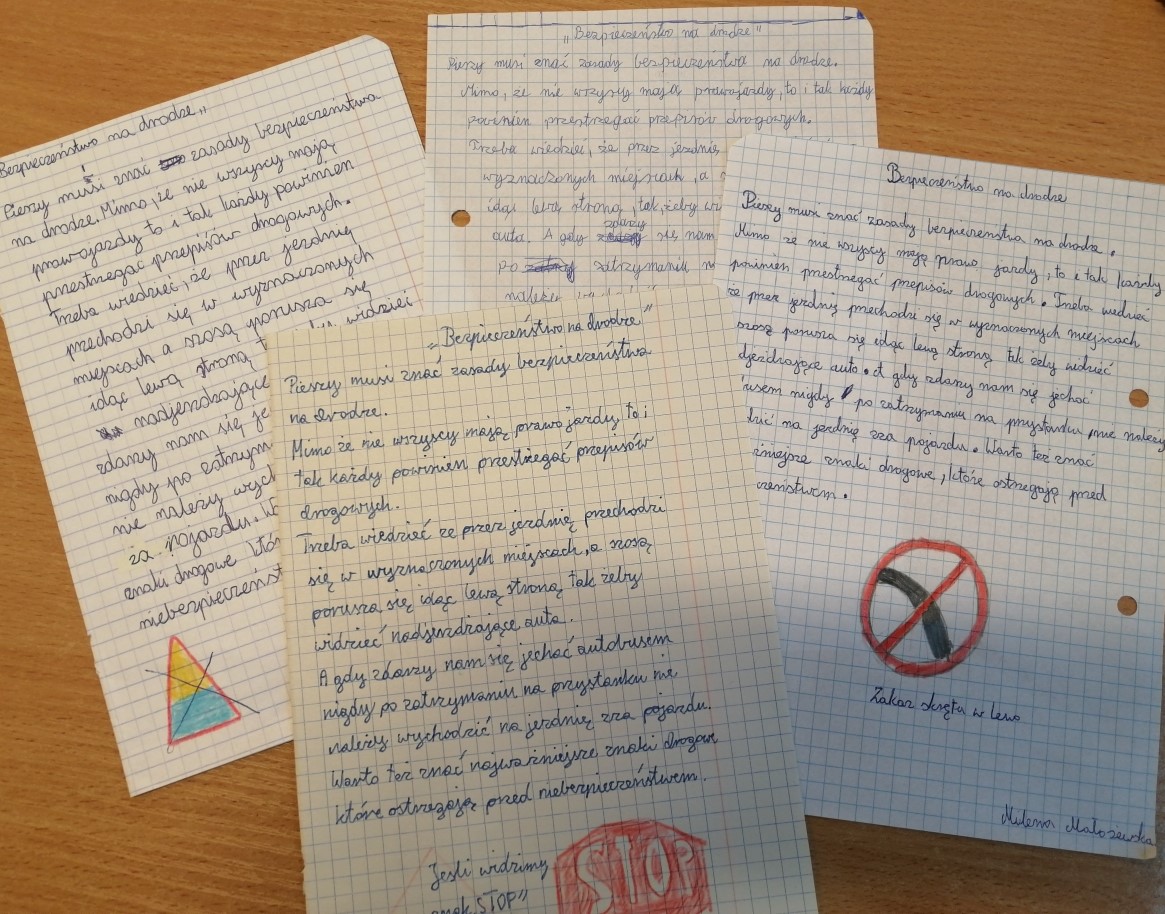 Bezpieczeństwo na drodze„
Pieszy musi znać zasady bezpieczeństwa
na drodze. Mimo, że nie wszyscy mają
prawojazdy to i tak każdy powinien
przestrzegać przepisów drogowych.
Trzeba wiedzieć, że przez jezdnię
przechodzi się w wyznaczonych
miejscach a szosą porusza się
idąc lewą stroną widzieć
nadjerzdzające
zdarzy nam się je
nigdy po zatrzym
nie należy wych
za pojazdu. Wa
znaki drogowe któr
niebezpieczeńst
„Bezpieczeństwo na drodze"
Pieszy musi znać zasady bezpieczeństwa na drodze.
Mimo, że nie wszyscy mają prawojazdy, to i tak każdy
powinien przestrzegać przepisów drogowych.
Trzeba wiedzieć, że przez jezdnię
wyznaczonych miejscach, a
idąc lewą stroną, tak, żeby wi
auta. A gdy zdarzy się nam
po zatrzymaniu n
należy
„Bezpieczeństwo na drodze"
Pieszy musi znać zasady bezpieczeństwa
na drodze.
Mimo że nie wszyscy mają prawo jazdy, to i
tak każdy powinien przestżegać przepisów
drogowych.
Trzeba wiedzieć ze przez jezdnię przechodzi
się w wyznaszonych miejscach, a szosą
porusza się idąc lewą stroną tak żeby
widzieć nadjerzdrzające auta.
A gdy zdarzy nam się jechać autobusem
nigdy po zatrzymaniu na przystanku nie
należy wychodzić na jezdnię zza pojazdu.
Warto też znać najważniejsze znaki drogowe
które ostrzegają przed niebezpieczeństwem.
Jeśli widzimy
znak „STOP"
STOP
Bezpieczeństwo na drodze
Pieszy musi znać zasady bezpieczenstwa na drodze.
Mimo że nie wszyscy mają prawo jazdy, to i tak każdy
powinien przestrzegać przepisów drogowych. Trzeba wiedzieć
że przez jezdnię przechodzi się w wyznaczonych miejscach
szosą porusza się idąc lewą stroną tak żeby widzieć
djezdzające auto. A gdy zdarzy nam się jechać
usem nigdy po zatrzymaniu na przystanku, nie należy
dzić na jezdnię zza pojazdu. Warto też znać
żniejsze znaki drogowe, które ostrzegają przed
czeństwem.
Zakaz skrętu w lewo
Milena Małożewska